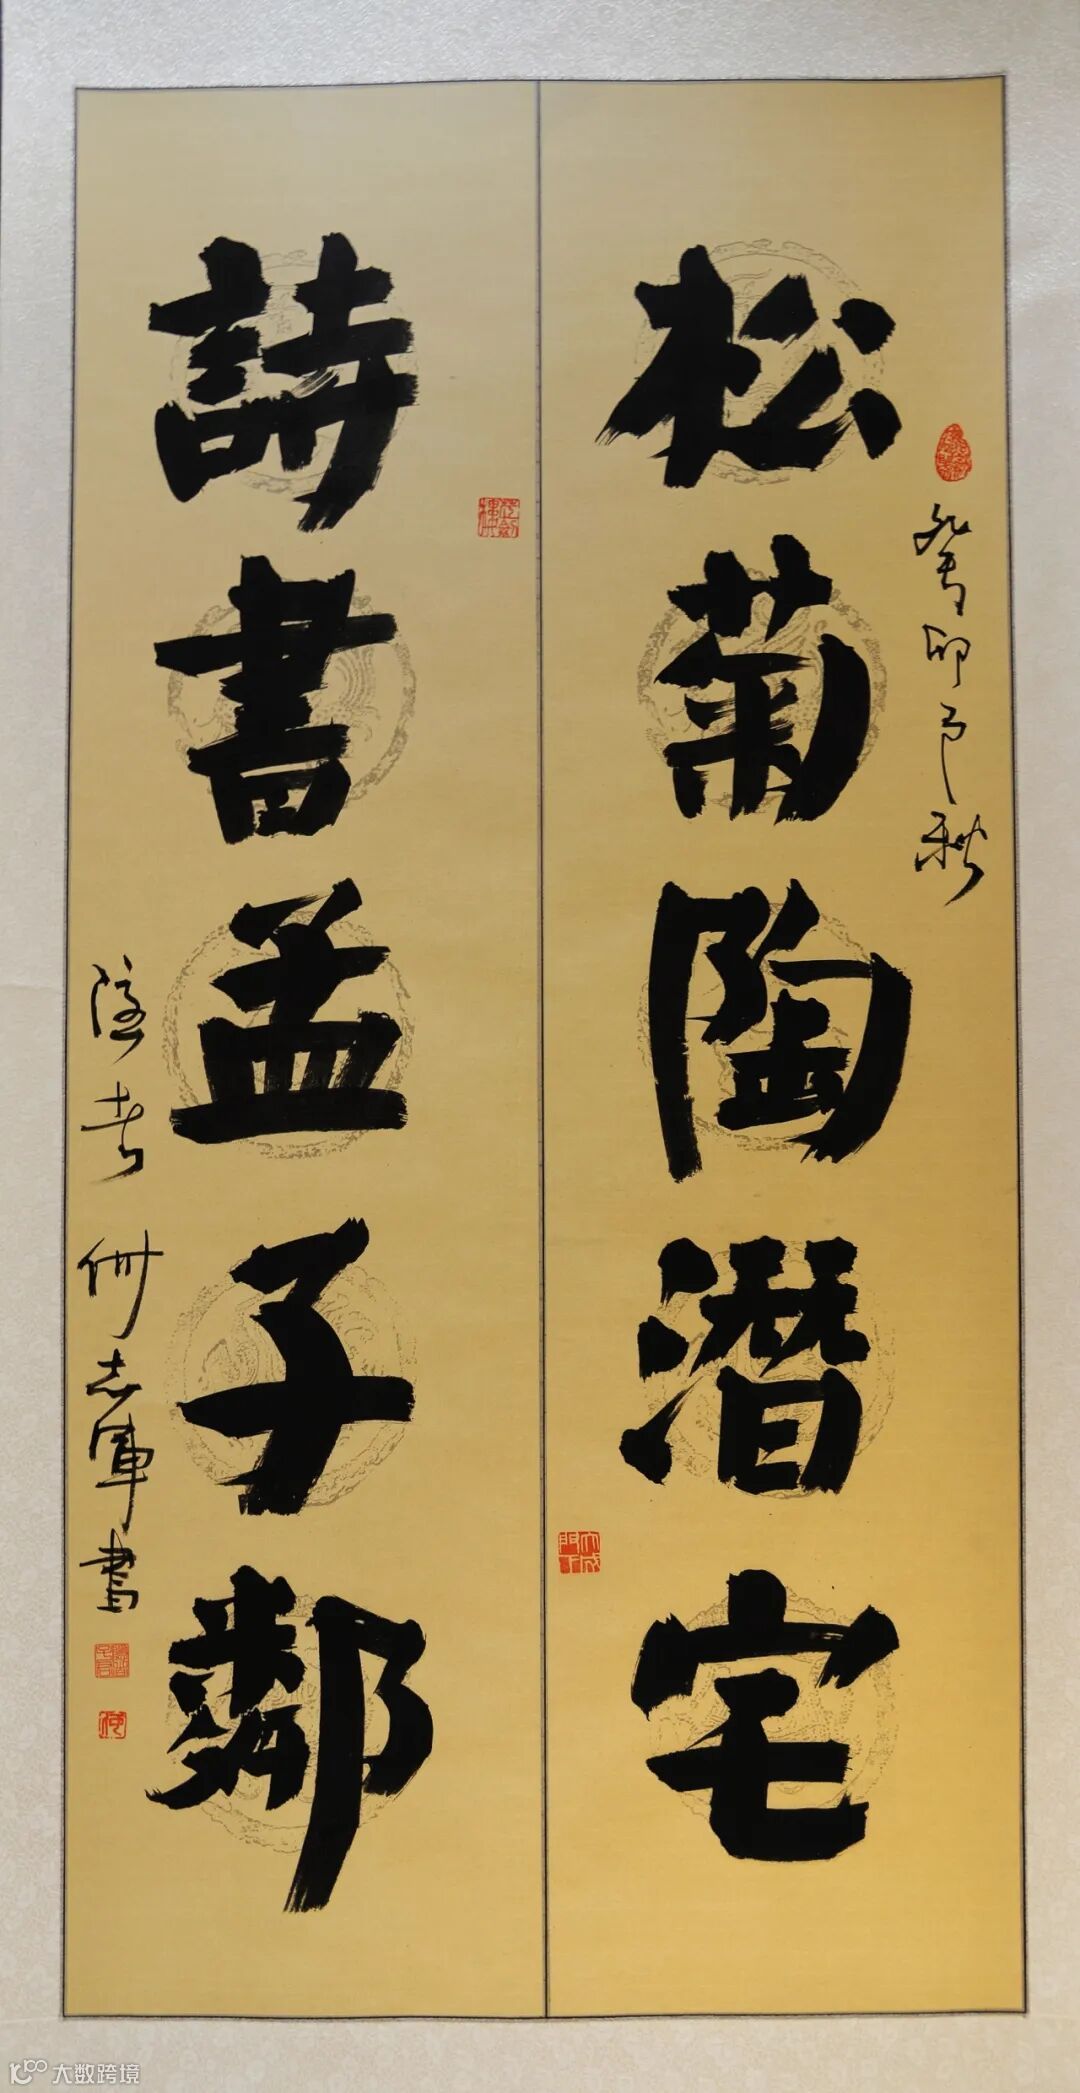 松菊陶潛宅
癸卯之秋
詩書孟子鄰
志軍書
大数跨境